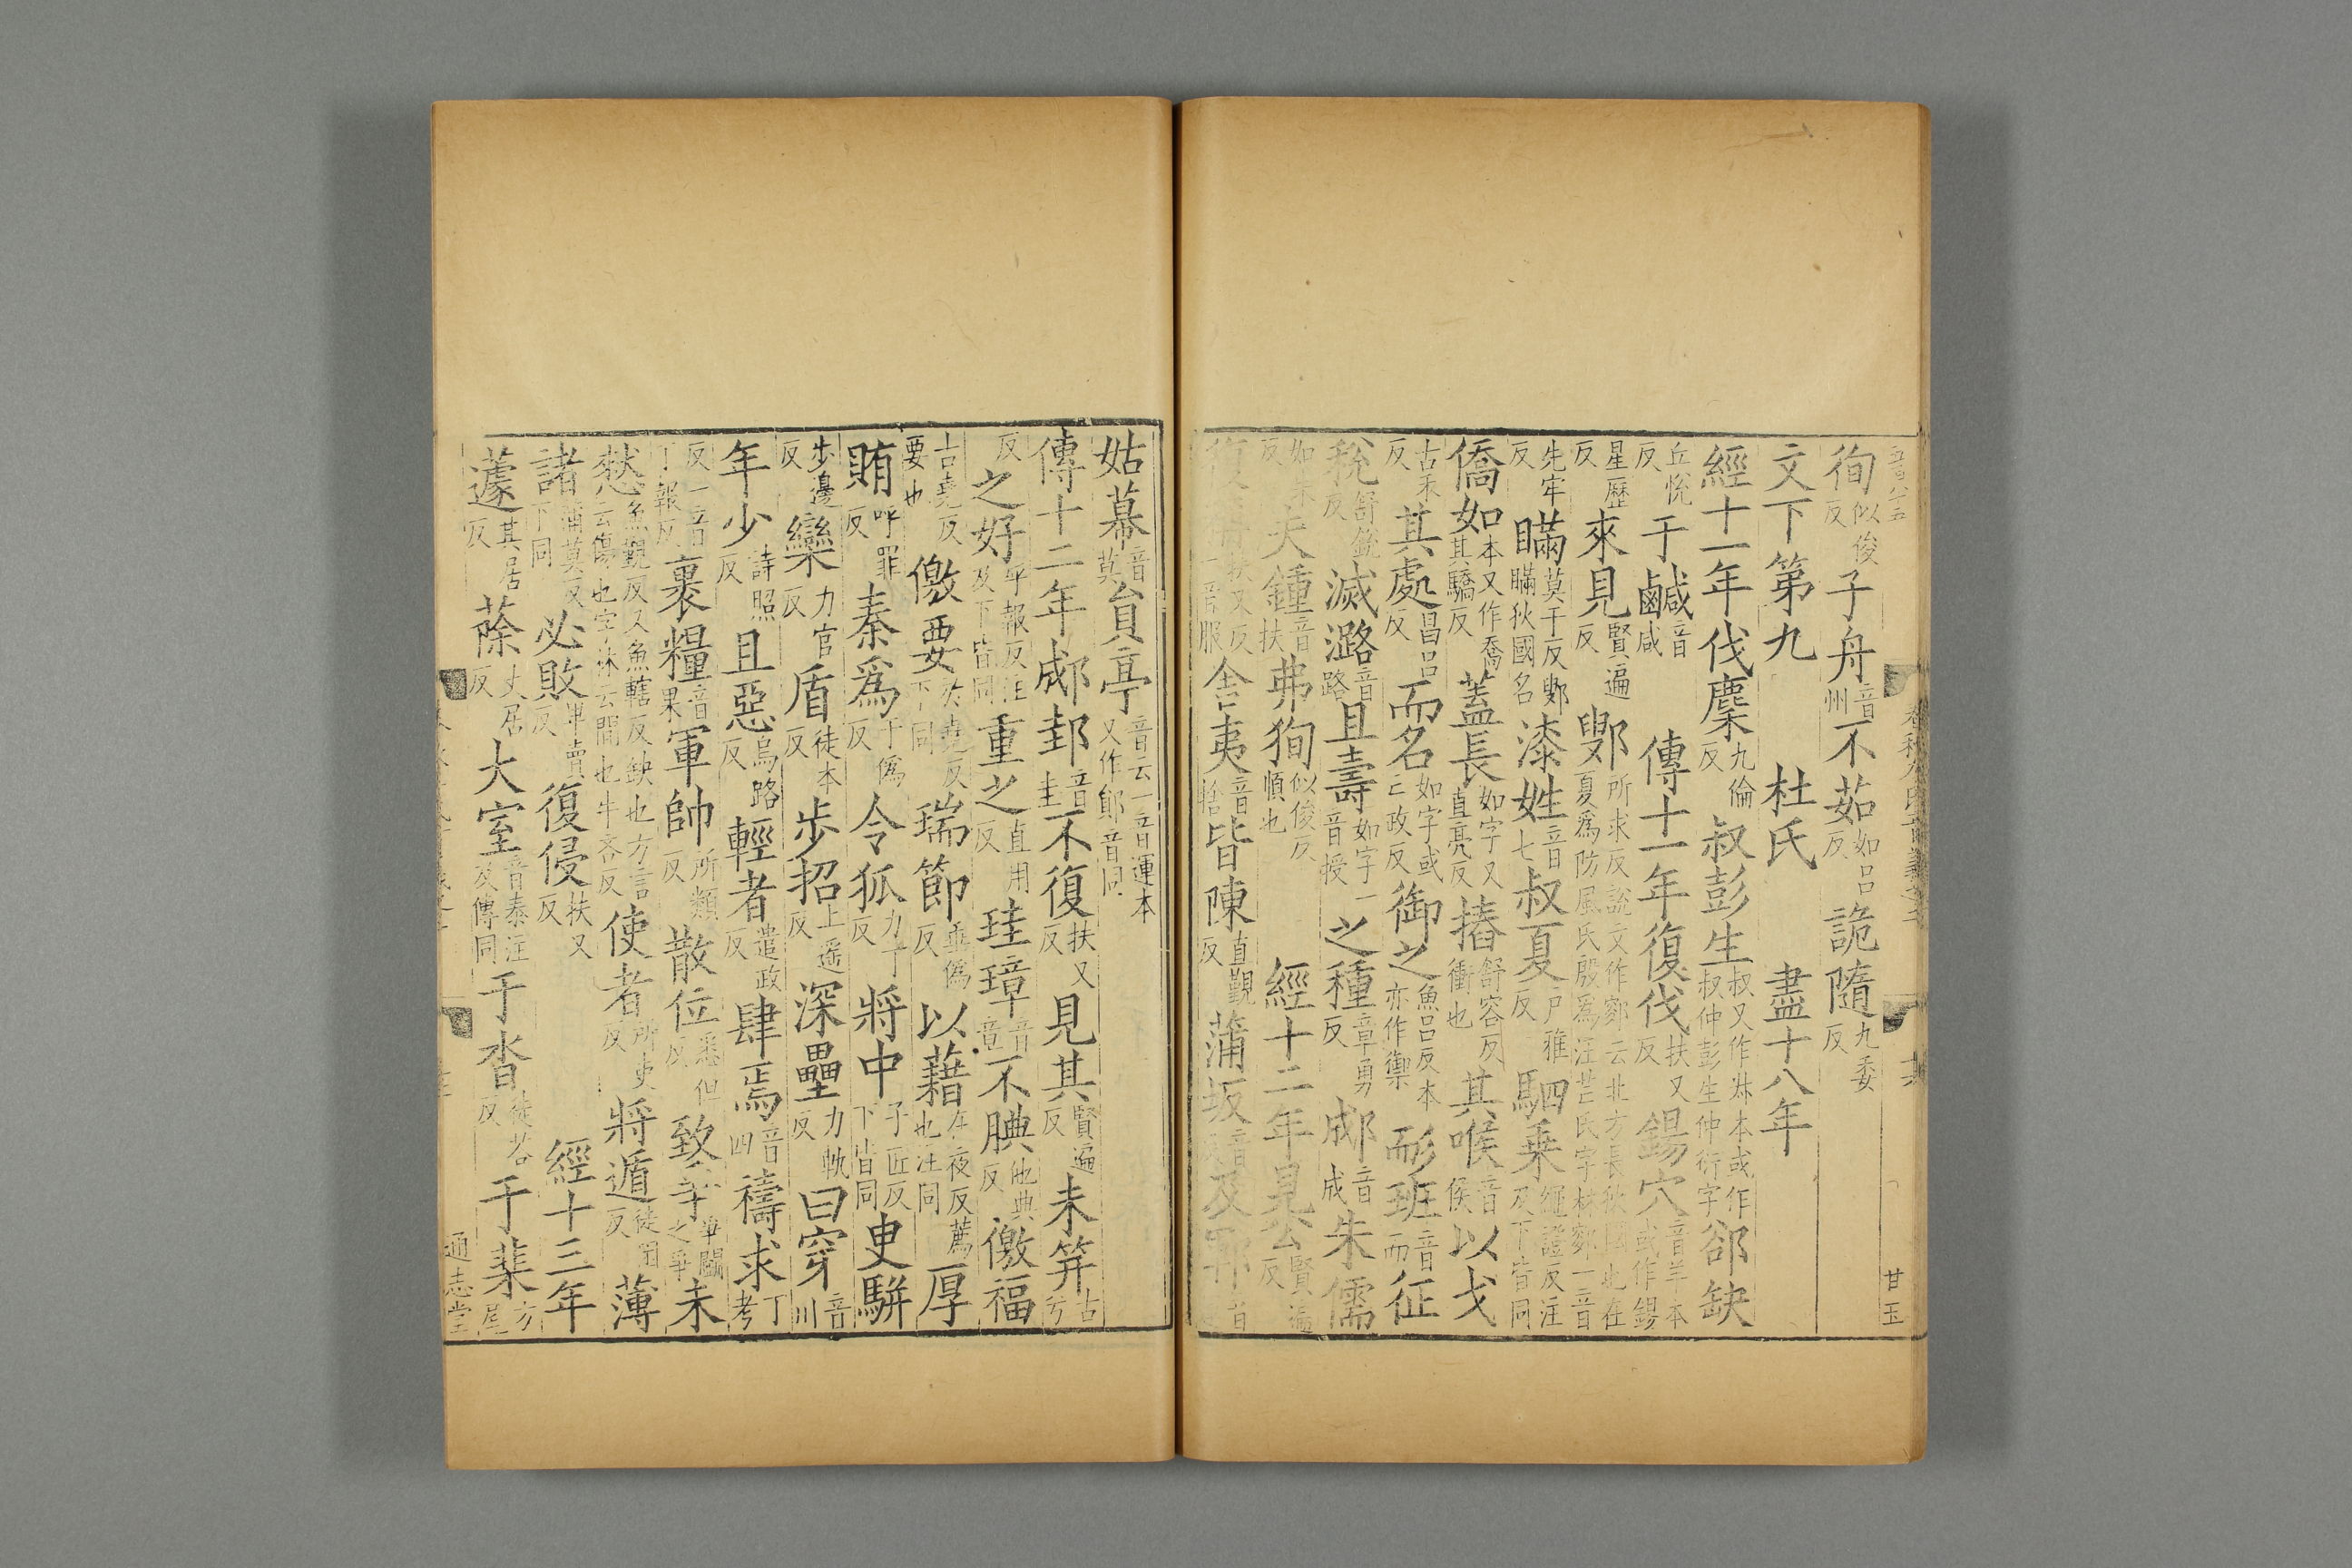 徇似俊反子舟音州不茹如呂反詭隨九委反
文下第九 杜氏 盡十八年
經十一年伐麇九倫反叔彭生叔又作尗本或作叔仲彭生仲衍字郤缺
丘悅反于鹹音咸傳十一年復伐扶又反錫穴音羊本或作錫
星歷反來見賢遍反鄋所求反說文作鄋云北方長狄國也在夏為防風氏殷為汪芒氏字林鄋一音
先牢反瞞莫干反鄋瞞狄國名漆姓音七叔夏戶雅反駟乗繩證反注及下皆同
僑如本又作喬其驕反蓋長如字又直亮反摏舒容反衝也其喉音侯以戈
古禾反其處昌呂反而名如字或亡政反御之魚呂反本亦作禦耏班音而征
稅舒銳反滅潞音路且壽如字一音授之種章勇反郕音成朱儒
如朱反夫鍾音扶弗狥似俊反順也經十二年見公賢遍反
扶又反音服舍夷音捨皆陳直覲反蒲坂音反及鄆音
姑幕音莫員亭音云一音運本又作鄖音同
傳十二年郕邽音圭不復扶又反見其賢遍反未笄古兮
反之好呼報反注及下皆同重之直用反珪璋音章不腆他典反徼福
古堯反要也徼要於堯反下同瑞節垂偽反以藉在夜反薦也注同厚
賄呼罪反秦爲于偽反令狐力丁反將中子匠反下皆同臾駢
步邊反欒力官反盾徒本反步招上遥反深壘力軌反曰穿音川
年少詩照反且惡烏路反輕者遣政反肆焉音四禱求丁考
反一音丁報反裹糧音果軍帥所類反散位悉但反致爭爭鬭之爭未
憖魚覲反又魚轄反缺也方言云傷也字林云閒也牛吝反使者所吏反將遁徒困反薄
諸蒲莫反下同必敗卑賣反復侵扶又反經十三年
蘧其居反蒢丈居反大室音泰注及傳同于沓徒荅反于棐方尾
通志堂